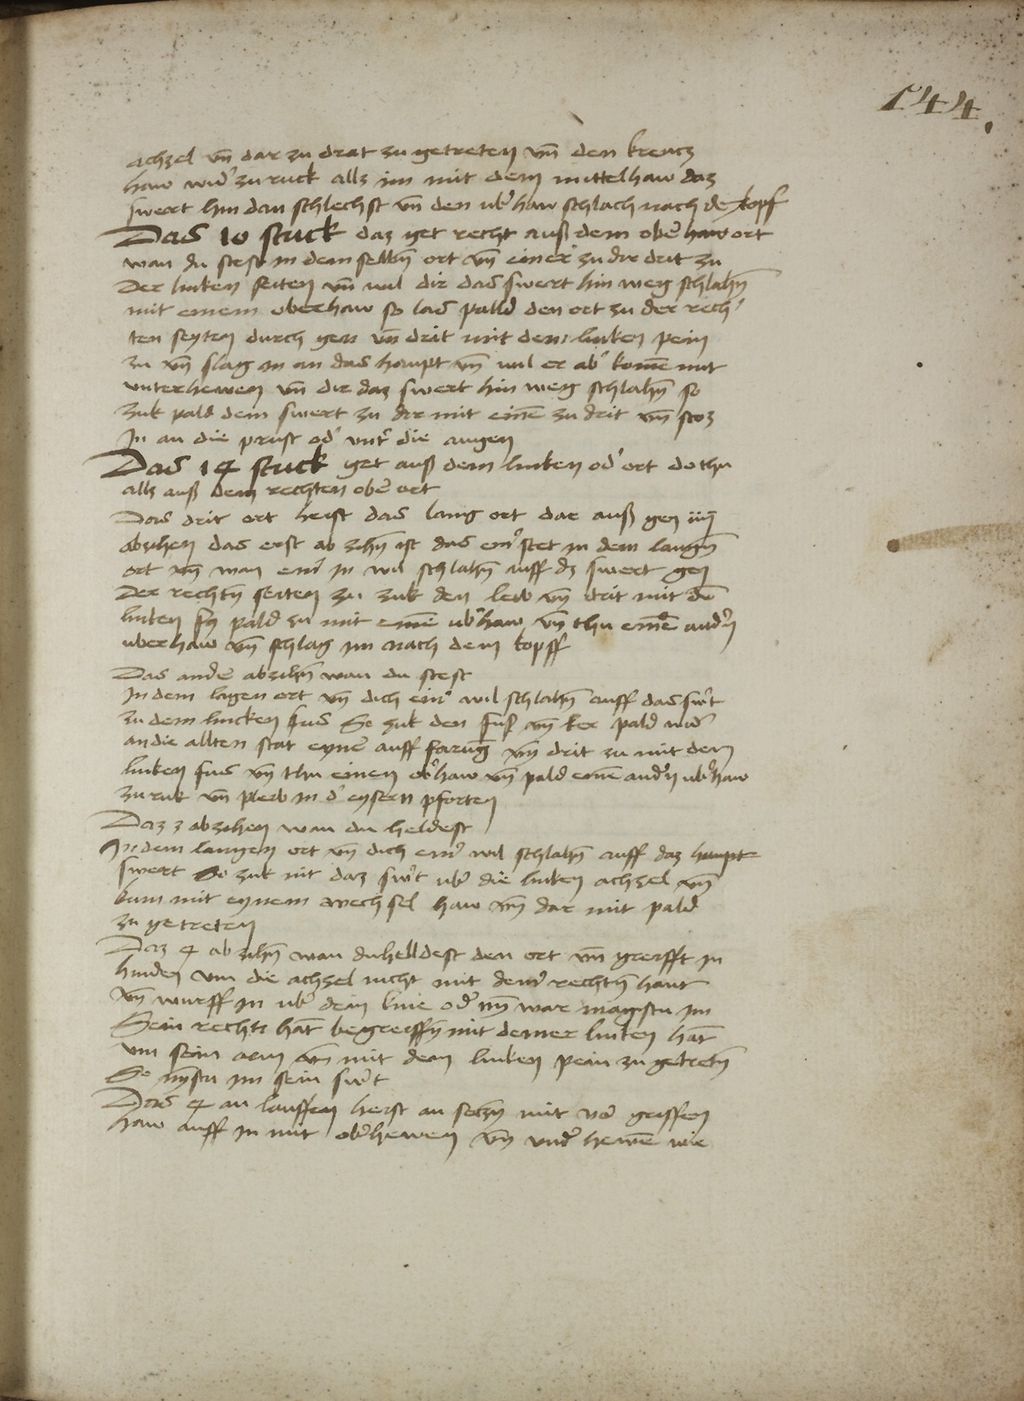 144.
achzel vn̄ dar zu drat zu getreten vn̄ den kreucz
haw wid' zu ruck alls im mit dem mittelhaw daz
swert hin dan schlechst vn̄ den ub' haw schlach nach de kopf
Das 10 stuck daz get recht auß dem ober haw ort
wan du stest in dem selbn̄ ort vn̄ einer zu dir drit zu
der linken seiten vn̄ wil dir das swert hin weg schlahn̄
mit einem oberhaw so las palld den ort zu der rech
ten seyten durch gen vn̄ drit mit dem linken pein
zu vn̄ slag in an das haupt vn̄ wil er ab' kome mit
unterhewen vn̄ dir daz swert hin weg schlahn̄ so
zuk pald dein swert zu dir mit eine zu drit vn̄ stoz
In an die prust od' unt' die augen
Das 14 stuck get auß dem linken od' ort do thu
alls auß dem rechten ober ort
Das drit ort heist das lang ort dar auß gen iiij
abzihen das erst ab zihn̄ ist das ein' stet in dem langn̄
ort vn̄ wan ein' in wil schlahn̄ auff dz swert gen
der rechtn̄ seiten zu zuk den leib vn̄ drit mit de
linken pald zu mit eine ub'haw vn̄ thu eine andrn̄
uberhaw vn̄ schlag im nach dem kopff
Das ander abzihn̄ wan du stest
In dem lagen ort vn̄ dich ein' wil schlahn̄ auff das sw't
zu dem lincken fus So zuk den fuß vn̄ ker pald wid'
an die allten stat eyner auff vn̄ drit zu mit dem
linken fus vn̄ thu einen ob'haw vn̄ pald eine andrn̄ ub'haw
zu ruk vn̄ pleib in d' eysern pforten
Daz 3 abzihen wan du heldest
In dem langen ort vn̄ dich ein' wil schlahn̄ auff daz haupt
swert So zuk mit daz sw't ub' die linken achzel vn̄
kum mit eynem wechsel haw vn̄ dar mit pald
zu getreten
Daz 4 ab zihn̄ wan du helldest den ort vn̄ greifft in
hinden um die achzel nicht mit dein' rechtn̄ hant
vn̄ wurff in ub' dein knie oder nym war magstu im
Sein recht hat begreiffn̄ mit deiner linken hat
um sein arm vn̄ mit dem linken pein zu getretn̄
So nymstu im sein sw't
Das 4 an lauffen heist an setzn̄ mit vor greiffen
haw auff in mit oberhewen vn̄ under hewe wie